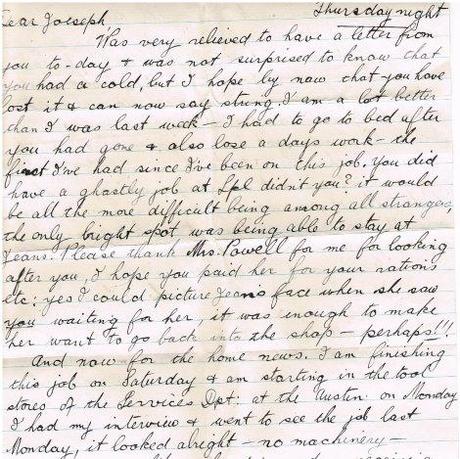 Dear Joeseph Thursday night
Was very relieved to have a letter from
you to-day & was not surprised to know that
you had a cold, but I hope by now that you have
lost it & can now say string. I am a lot better
than I was last week - I had to go to bed after
you had gone & also lose a days work - the
first I've had since I've been on this job, you did
have a ghastly job at Lpl didn't you? it would
be all the more difficult being among all strangers,
the only bright spot was being able to stay at
Jeans. Please thank Mrs. Powell for me for looking
after you, I hope you paid her for your rations
etc; yes I could picture Jeans face when she saw
you waiting for her, it was enough to make
her want to go back into the shop - perhaps!!!
And now for the home news. I am finishing
this job on Saturday & am starting in the tool
stores of the Services Dpt: at the Austin on Monday
I had my interview & went to see the job last
Monday, it looked alright - no machinery -